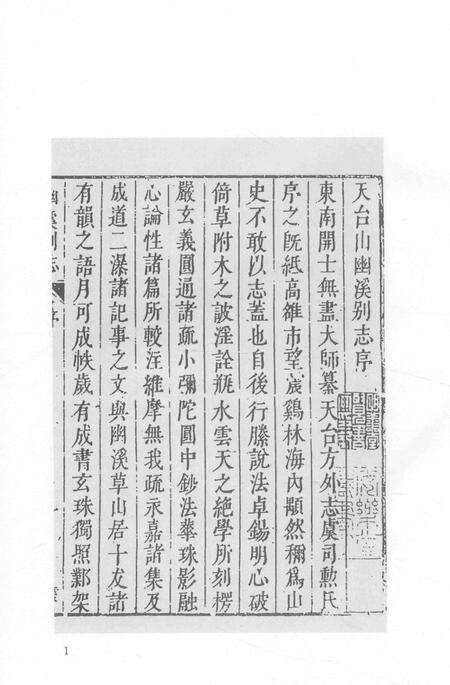 天台山幽溪别志序
東南開士無盡大師纂天台方外志虞司勲氏
序之既紙高雒市望歲鷄林海內顒然稱為山
史不敢以志蓋也自後行縢說法卓錫明心破
倚草附木之詖淫詮瓶水雲天之絕學所刻楞
嚴玄義圓通諸疏小彌陀圓中鈔法華珠影融
心論性諸篇所較注維摩無我疏永嘉諸集及
成道二瀑諸記事之文與幽溪草山居十友諸
有韻之語月可成帙歲有成書玄珠獨照鄴架
幽溪别志
序
1